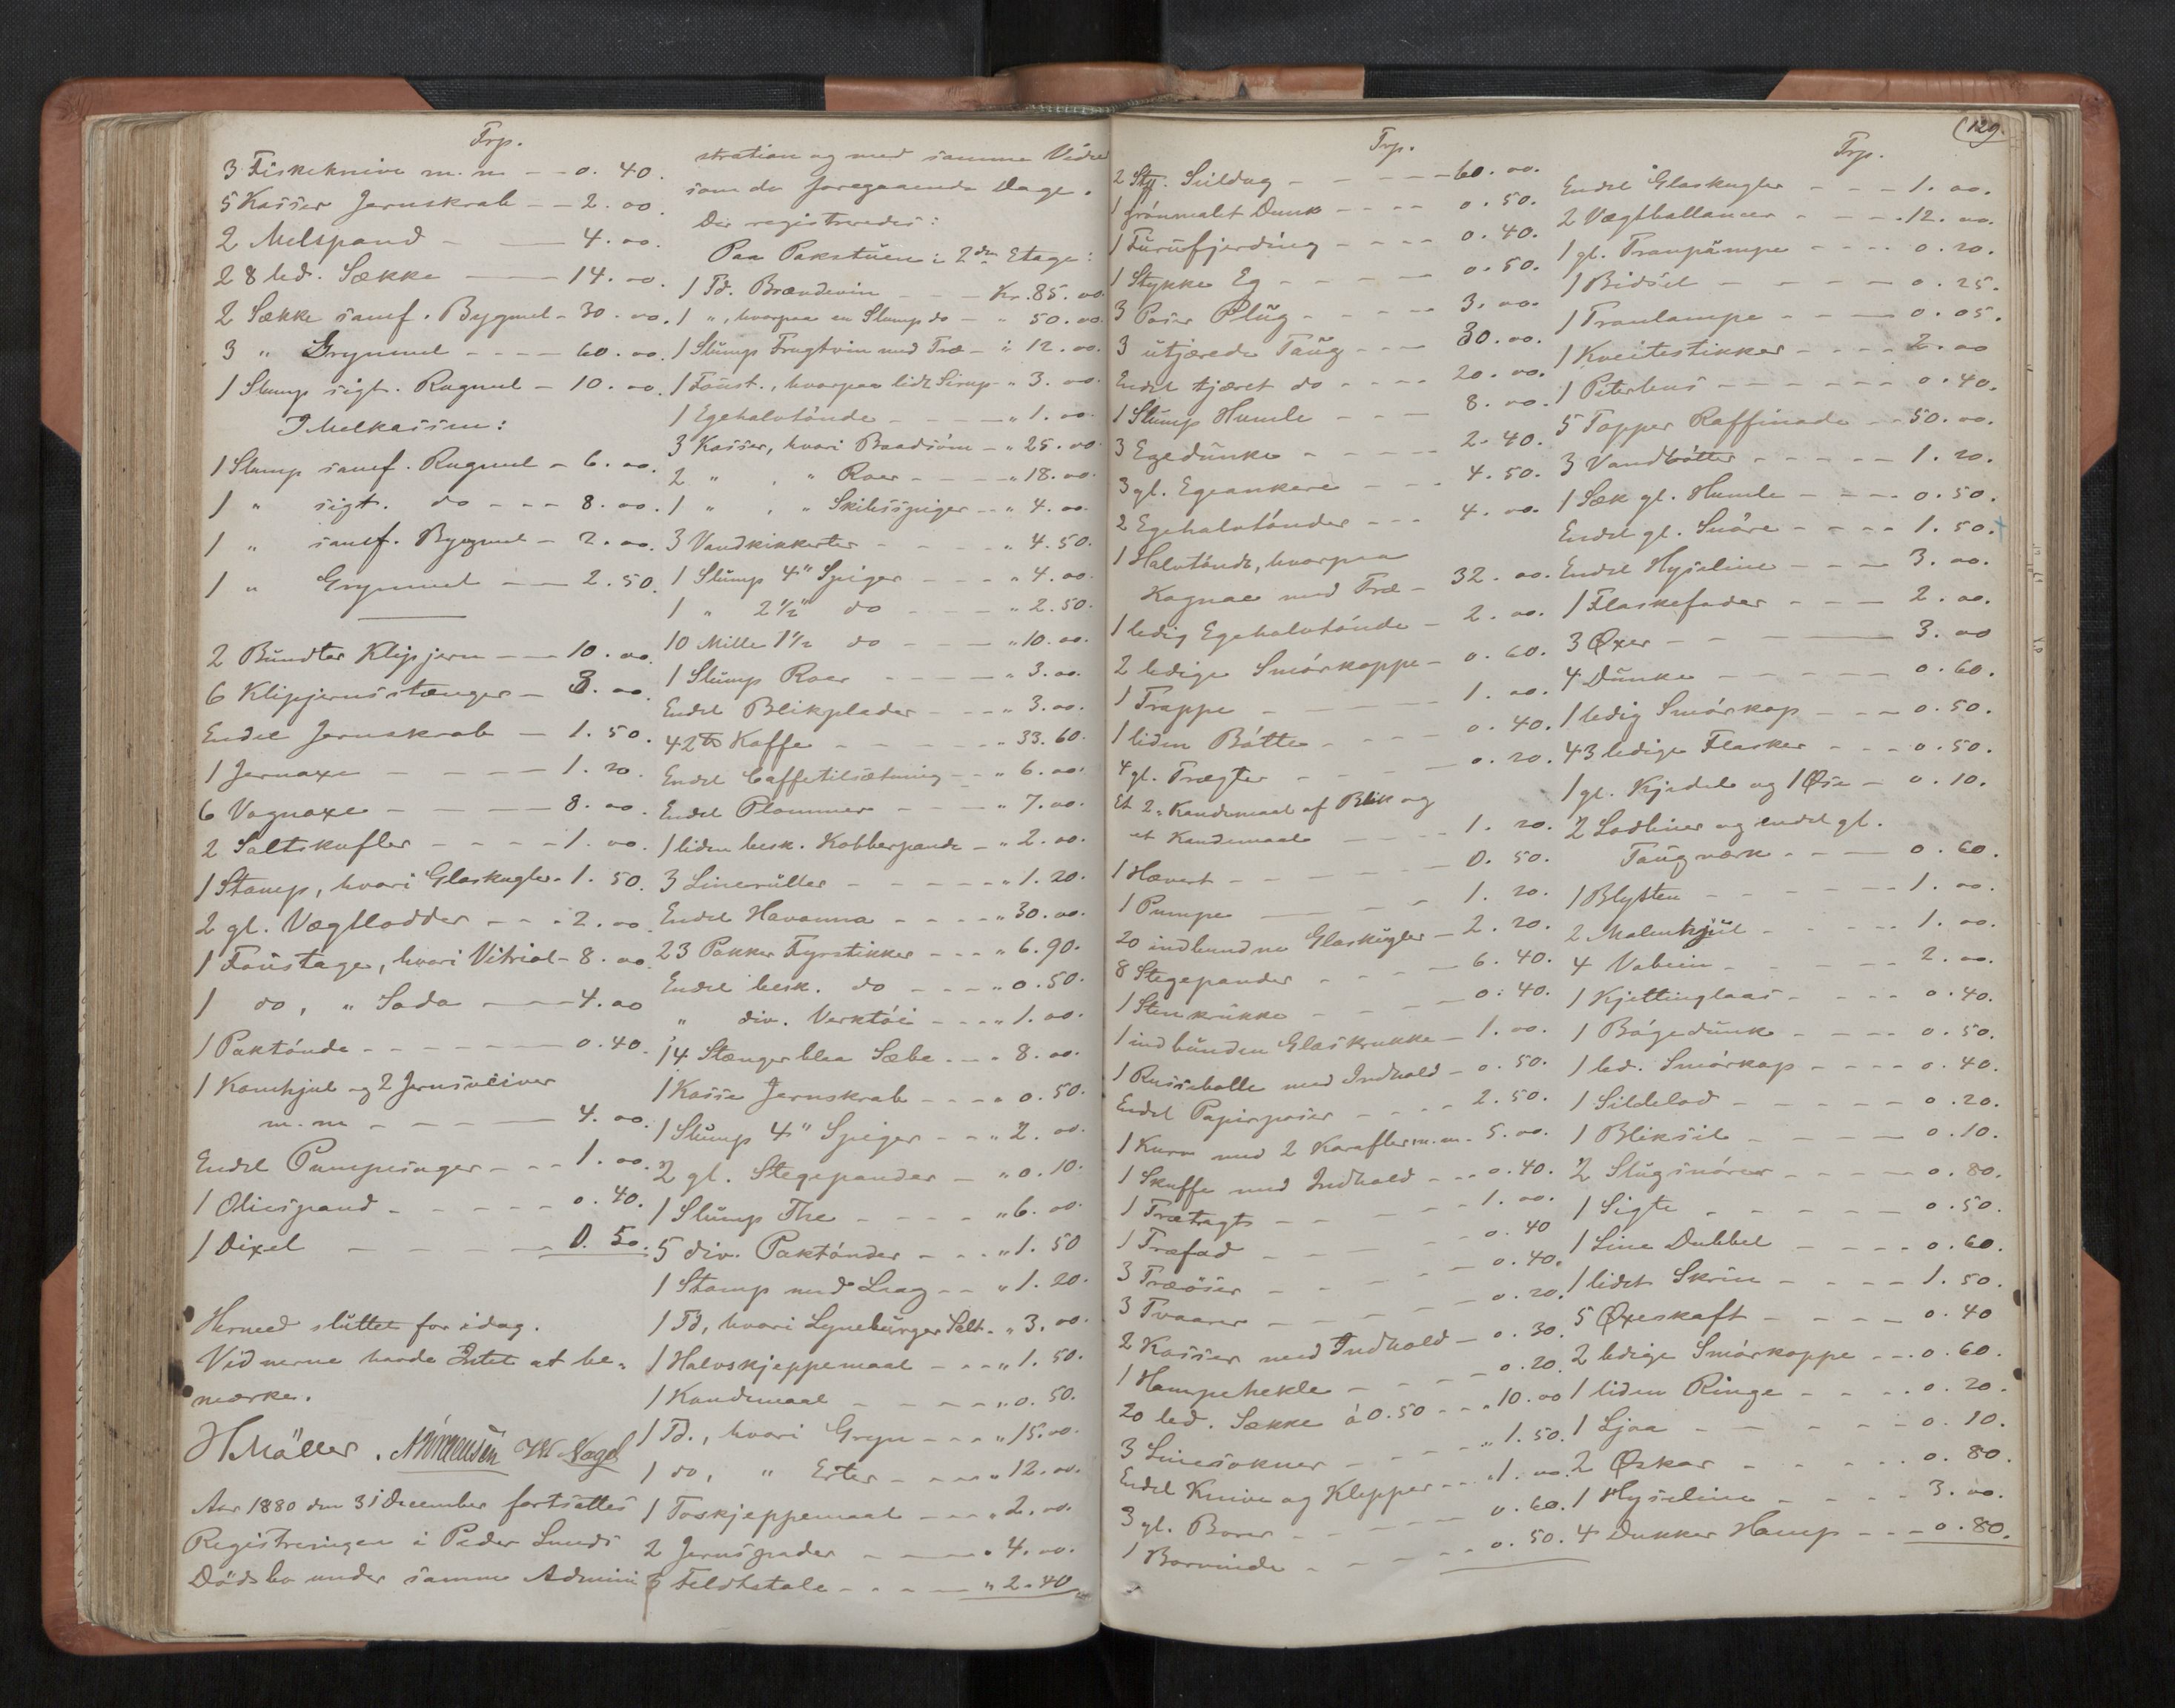 Trp.
3 Fiskeknive m. m - - 0. 40.
5 Kasser Jernskrab - - 2. 00.
2 Melspand - — 4. 00.
28 led. Sække — 14. 00.
2 Sække samf. Bygmel - 30. 00.
3 " Grynmel - - - - 60. 00.
1 Slump sigt. Rugmel - 10. 00.
I Melkassen:
1 Slump samf. Rugmel - 6. 00.
1 " sigt. do - - - 8. 00.
1 " samf. Bygmel - 2. 00.
1 " Grynmel - — 2. 50.
2 Bundter Klipjern — 10. 00.
6 Klipjernsstænger - 3. 00.
Endel Jernskrab - 1. 50.
1 Jernaxe - - - - 1. 20.
6 Vognaxe - - - — 8. 00.
2 Saltskufler - - - - 1. 00.
1 Stamp, hvori Glaskugler - 1. 50.
2 gl. Vægtlodder - - - 2. 00.
1 Foustage, hvori Vitriol - 8. 00.
1 do, " Soda - — 4. 00
1 Paktönde - - - - - 0. 40.
1 Kamhjul og 2 Jernsveiver
m. m - - - — 4. 00.
Endel Pumpesuger - - - 1. 00.
1 Oliespand - - - - - 0. 40.
1 Dixel - - - - - 0. 50.
Hermed sluttet for idag.
Vidnerne havde Intet at be-
mærke.
H Möller. W Nagel
Aar 1880 den 31 December fortsattes
Registreringen i Peder Lunds
Dödsbo under samme Admini
stration og med samme Vidner
som de foregaaende Dage.
Der registreredes:
Paa Pakstuen i 2den Etage:
1 Td. Brændevin - - - Kr. 85. 00
1 ", hvorpaa en Slump do - " 50. 00
1 Slump Frugtvin med Træ - " 12. 00.
1 Foust., hvorpaa lidt Sirup - " 3. 00.
1 Egehalvtönde - - - - " 1. 00.
3 Kasser, hvori Baadsöm - " 25. 00
2 " , " Roer - - - - " 18. 00.
1 " , " Skibsspiger - - " 4. 00.
3 Vandkikkerter - - - - " 4. 50.
1 Slump 4" Spiger - - - " 4. 00.
1 " 2½" do - - - - " 2. 50.
10 Mille 1½ do - - - " 10. 00.
1 Slump Roer - - - - " 3. 00.
Endel Blikplader - - - " 3. 00.
42 ℔ Kaffe - - - - - " 33. 60.
Endel Caffetilsætning - - " 6. 00.
Endel Plommer - - - - " 7. 00.
1 liden besk. Kobberpande - " 2. 00.
3 Linerüller - - - - - " 1. 20.
Endel Havanna - - - - " 30. 00.
23 Pakker Fyrstikker - - - " 6. 90.
Endel besk. do - - - - " 0. 50.
" div. Verktöi - - - " 1. 00.
14 Stænger blaa Sæbe - - - 8. 00.
1 Kasse Jernskrab - - - - 0. 50.
1 Slump 4" Spiger - - " 2. 00.
2 gl. Stegepander - " 0. 10.
1 Slump The - - - - " 6. 00.
5 div. Paktönder - - - " 1. 50
1 Stamp med Laag - - " 1. 20.
1 Td, hvori Lyneburger Salt - " 3. 00.
1 Halvskjeppemaal - - - " 1. 50.
1 Kandemaal - - - - " 0. 50.
1 Td., hvori Gryn - - - " 15. 00.
1 do, " Erter - - - - " 12. 00.
1 Toskjeppemaal - - - " 2. 00.
2 Jernspader - - - - " 4. 00.
6 Feldtstole - - - - " 2. 40
(129.
Trp.
2 Sty. Seildug - - - - 60. 00.
1 grönmalt Dunk - - - - 0. 50.
1 Furufjerding - - - - 0. 40.
1 Stykke Eg - - - - - 0. 50.
3 Poser Plüg - - - - - 3. 00.
3 utjærede Taug - - - 30. 00.
Endel tjæret do - - - - 20. 00.
1 Slump Humle - - - 8. 00.
3 Egedunke - - - - - 2. 40.
3 gl. Egeankere - - - 4. 50.
2 Egehalvtönder - - - 4. 00.
1 Halvtönde, hvorpaa
Kognac med Træ - 32. 00.
1 ledig Egehalvtönde - 2. 00.
2 ledige Smörkoppe - 0. 60.
1 Trappe - - - - - 1. 00.
1 liden Bötte - - - - 0. 40.
4 gl. Tragter - - - - 0. 20.
Et 2. Kandemaal af Blik og
et Kandemaal - - - - 1. 20.
1 Hævert - - - - - - 0. 50.
1 Pumpe - - - - - 1. 20.
20 indbundne Glaskugler - 2. 20.
8 Stegepander - - - - 6. 40.
1 Stenkrukke - - - - 0. 40.
1 indbunden Glaskrukke - 1. 00.
1 Russeballe med Indhold - 0. 50.
Endel Papirposer - - - - 2. 50.
1 Kurv med 2 Karafler m. m. - 5. 00.
1 Skuffe med Indhold - - 0. 40.
1 Trætragt - - - - - 1. 00.
1 Træfad - - - - - 0. 40
3 Træöser - - - - - 0. 40.
3 Tvaarer - - - - - 0. 20.
2 Kasser med Indhold - 0. 30.
1 Hampehekle - - - - 0. 20.
20 led. Sække á 0. 50 - - - 10. 00
3 Linesokner - - - - " 1. 50.
Endel Knive og Klepper - - - 1. 00.
3 gl. Borer - - - - - 0. 60.
1 Borvinde - - - - - 0. 50.
Trp.
Endel Glaskugler - - - 1. 00.
2 Vægtballancer - - - - 12. 00.
1 gl. Tranpumpe - - - - 0. 20.
1 Bidsel - - - - - 0. 25.
1 Tranlampe - - - - 0. 05.
1 Kveitestikker - - - - 2. 00
1 Peterhus - - - - - - 0. 40.
5 Topper Raffinade - - 50. 00.
3 Vandbötter - - - - - 1. 20.
1 Sæk gl. Humle - - - - 0. 50.
Endel gl. Snöre - - - - 1. 50.
Endel Hyseline - - - 3. 00.
1 Flaskefoder - - - - 2. 00.
3 Øxer - - - — 3. 00
4 Dunke - - - - - 0. 60.
1 ledig Smörkop - - - 0. 50.
43 ledige Flasker - - - 0. 50.
1 gl. Kjedel og 1 Øse - 0. 10.
2 Lodliner og endel gl.
Taugværk - - - - 0. 60.
1 Blysten - - - - - - 1. 00.
2 Malenhjul - - - - - 1. 00.
4 Vabein - - - - - - 2. 00.
1 Kjettinglaas - - - - 0. 40.
1 Bögedunk - - - - 0. 50.
1 led. Smörkop - - - - 0. 40.
1 Sildelod - - - - - 0. 20.
1 Bliksil - - - - - 0. 10.
2 Slugsnörer - - - - 0. 80.
1 Sigte - - - - - 0. 50.
1 Line Dubbel - - - - 0. 60.
1 lidet Skrin - - - - 1. 50.
5 Øxeskaft - - - - - 0. 40
2 ledige Smörkoppe - - - 0. 60.
1 liden Ringe - - - - 0. 20.
1 Ljaa - - - - - - 0. 10.
2 Øskar - - - - - - 0. 80.
1 Hyseline - - - - 3. 00.
4 Dukker Hamp - - - 0. 80.